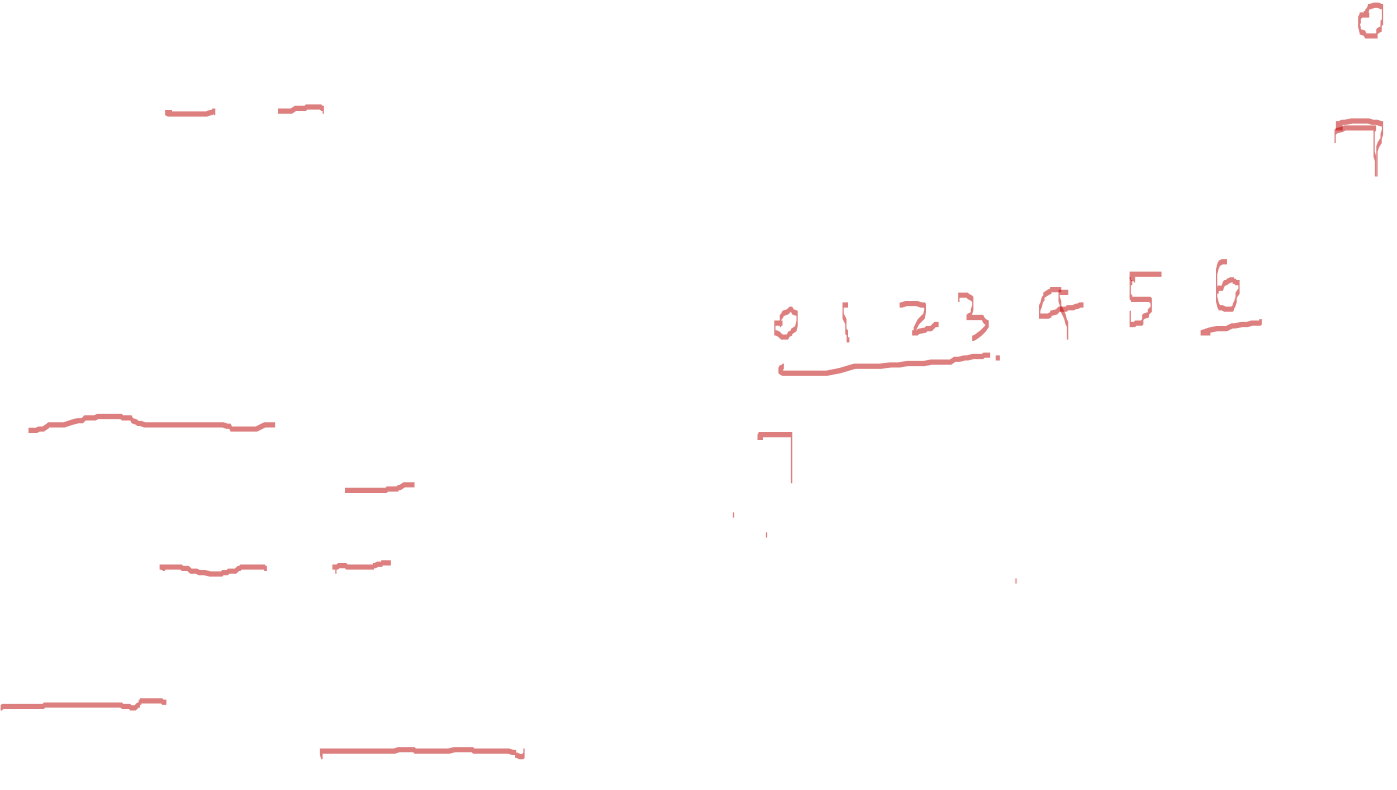 0
7
0 1 2 3 4 5 6
7